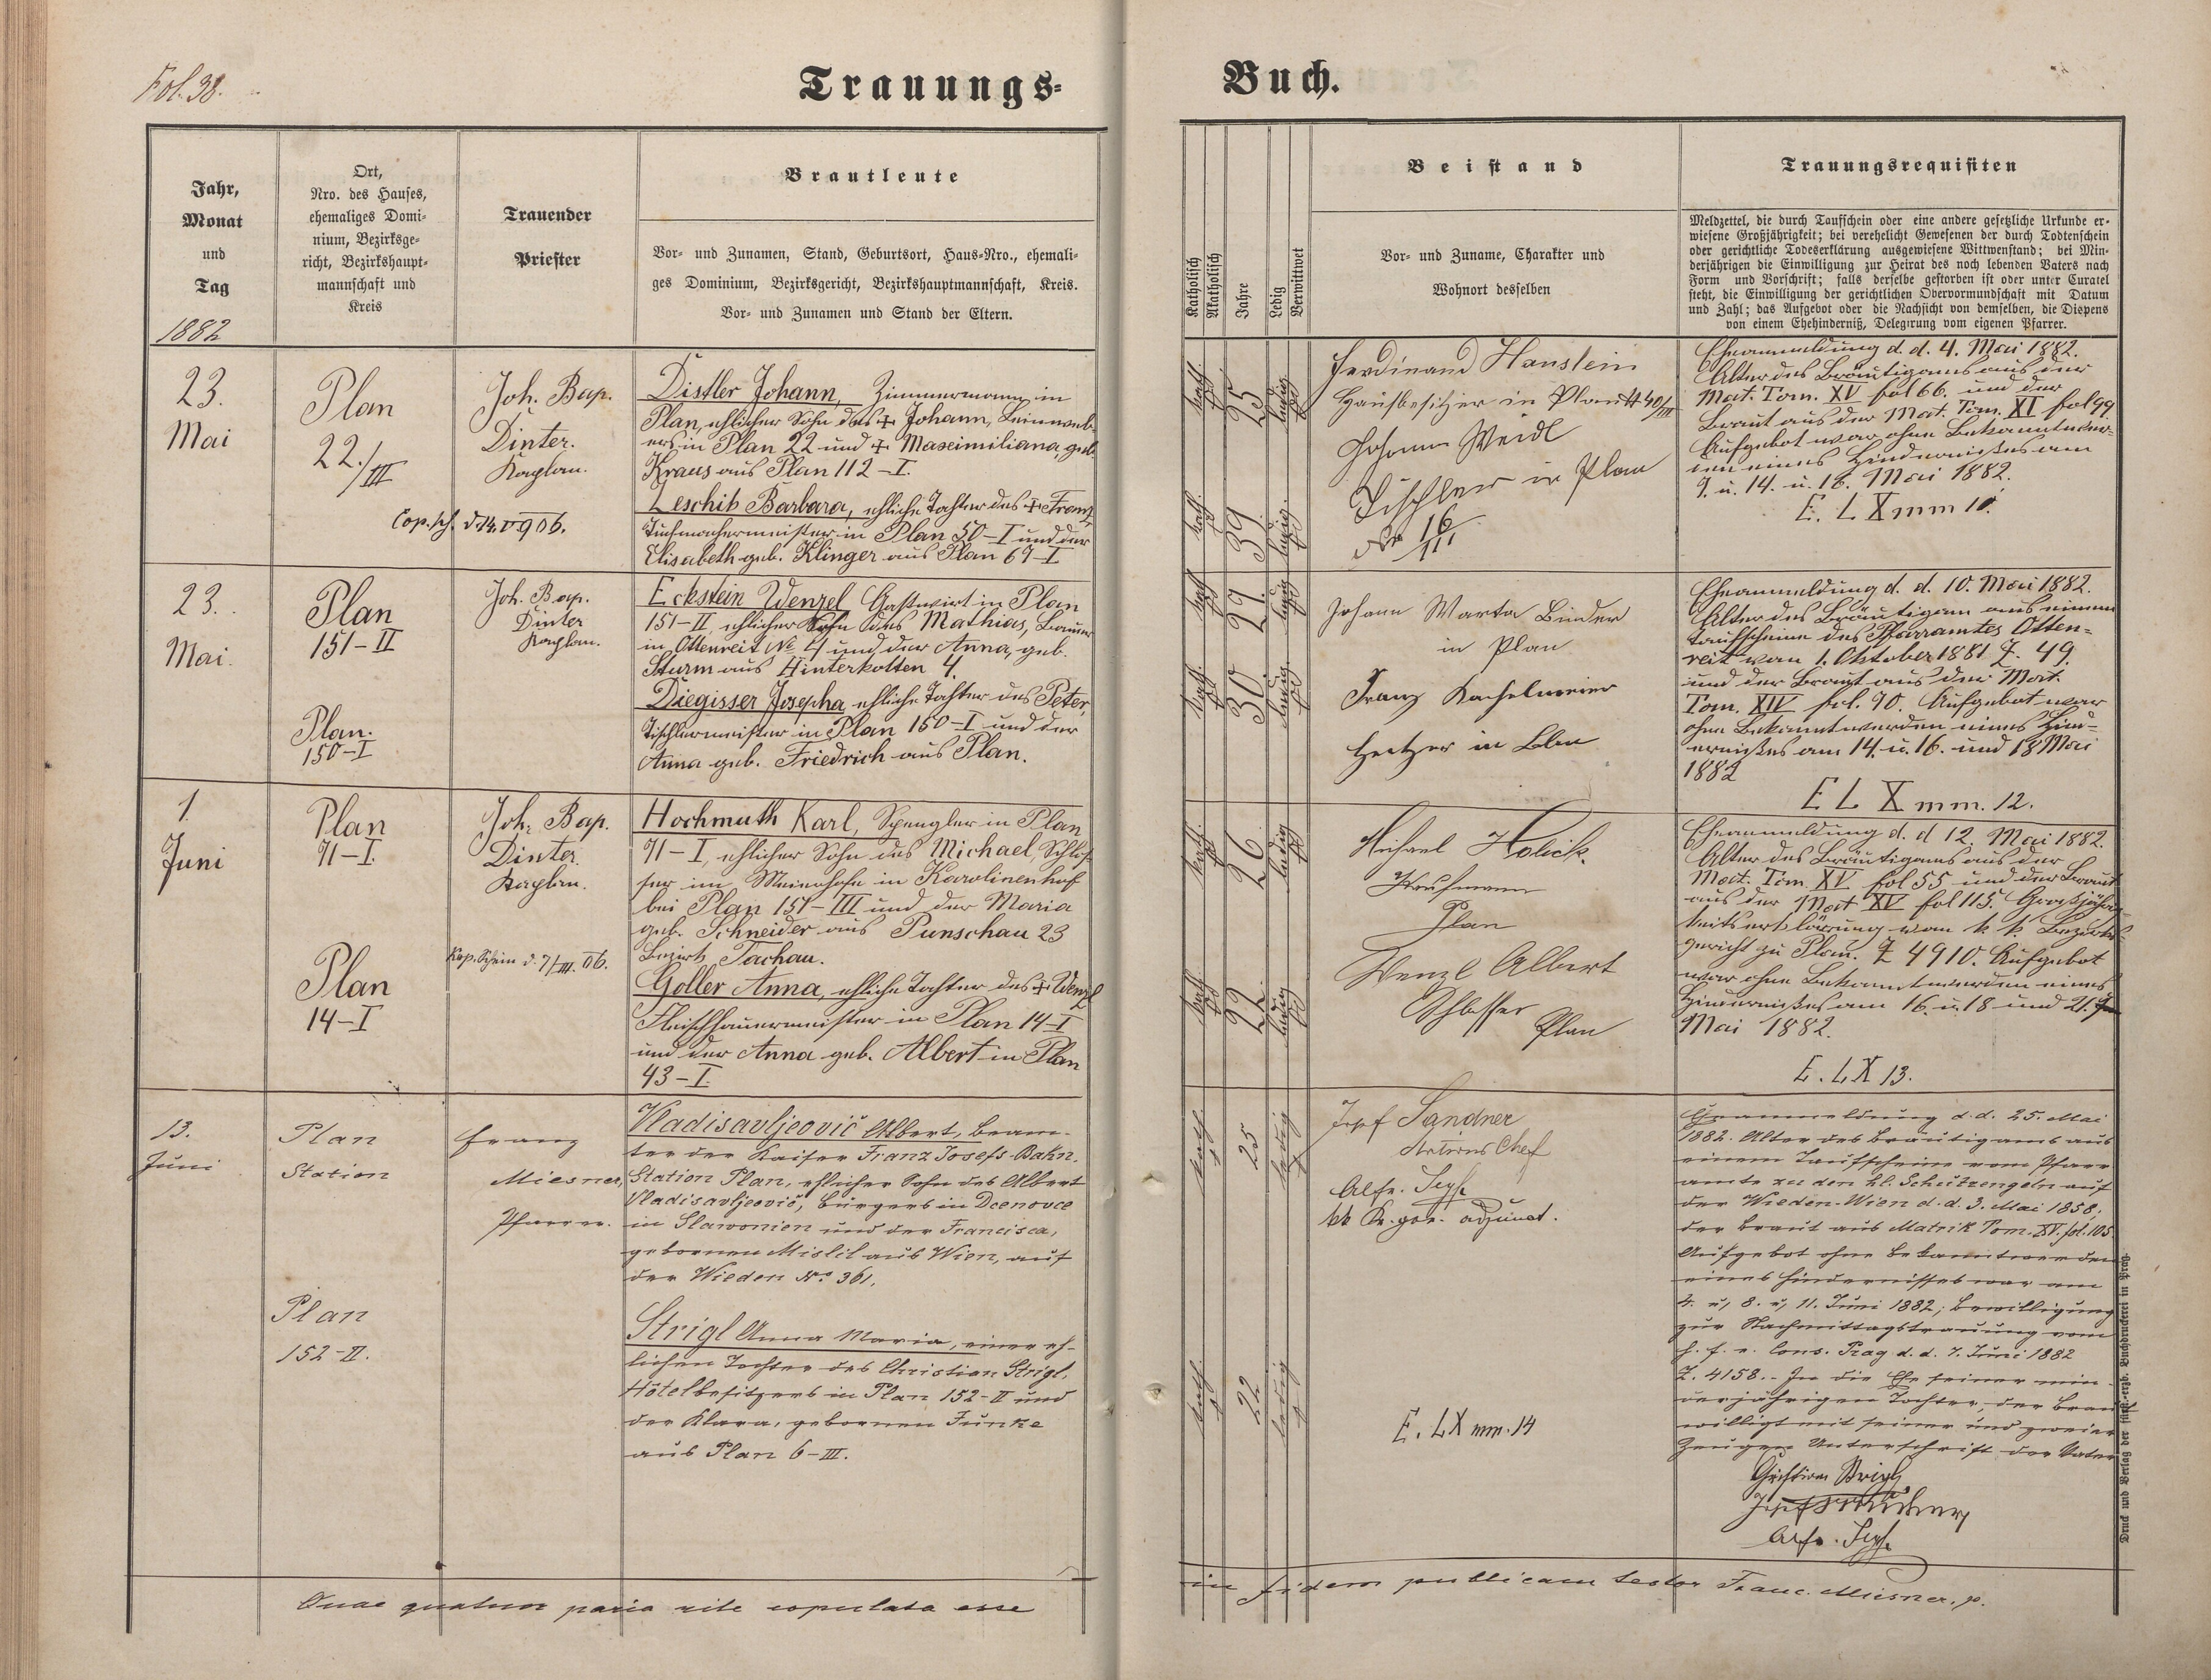 Fol. 38.
Trauungs-
Buch.
Jahr,
Monat
und
Tag
1882
Ort,
Nro. des Hauses,
ehemaliges Domi-
nium, Bezirksge-
richt, Bezirkshaupt-
mannschaft und
Kreis
Trauender
Priester
Brautleute
Vor- und Zunamen, Stand, Geburtsort, Haus-Nro., ehemali-
ges Dominium, Bezirksgericht, Bezirkshauptmannschaft, Kreis.
Vor- und Zunamen und Stand der Eltern.
Katholisch
Akatholisch
Jahre
Ledig
Verwittwet
Beistand
Vor- und Zuname, Charakter und
Wohnort desselben
Trauungsrequisiten
Meldzettel, die durch Taufschein oder eine andere gesetzliche Urkunde er-
wiesene Großjährigkeit; bei verehelicht Gewesenen der durch Todtenschein
oder gerichtliche Todeserklärung ausgewiesene Wittwenstand; bei Min-
derjährigen die Einwilligung zur Heirat des noch lebenden Vaters nach
Form und Vorschrift; falls derselbe gestorben ist oder unter Curatel
steht, die Einwilligung der gerichtlichen Obervormundschaft mit Datum
und Zahl; das Aufgebot oder die Nachsicht von demselben, die Dispens
von einem Ehehinderniß, Delegirung vom eigenen Pfarrer.
23.
Mai
Plan
22./III
Joh. Bap.
Dinter.
Kaplan.
Cop. sch. d. 14. V 906.
Distler Johann, Zimmermann in
Plan, ehlicher Sohn des + Johann, Leinweb-
ers in Plan 22 und + Maximiliana, geb.
Kraus aus Plan 112-I.
Leschib Barbara, ehliche Tochter des + Franz,
Tuchmachermeister in Plan 50-I und der
Elisabeth geb. Klinger aus Plan 67-I
kath.
25
ledig
kath.
39
ledig
Ferdinand Hanslein
Hausbesitzer in Plan # 40/III
Johann Weidl
Tischler in Plan
No 16/III
Eheanmeldung d. d. 4. Mai 1882.
Alter des Bräutigams aus der
Mat. Tom. XV fol 66. und der
Braut aus der Mat. Tom. XI fol 99.
Aufgebot war ohne Bekanntwer-
den eines Hindernißes am
7. u. 14. u. 18. Mai 1882.
E. L X mm 11.
23.
Mai.
Plan
151-II
Plan.
150-I
Joh. Bap.
Dinter
Kaplan.
Eckstein Wenzel Gastwirt in Plan
151-II ehlicher Sohn des Mathias, Bauer
in Ottenreit № 4 und der Anna, geb.
Sturm aus Hinterkotten 4.
Diegisser Josepha ehliche Tochter des Peter,
Tischlermeister in Plan 150-I und der
Anna geb. Friedrich aus Plan.
kath
27.
ledig
kath.
30.
ledig
Johann Warta Binder
in Plan
Franz Kachelmeier
Heitzer in
Eheanmeldung d. d. 10. Mai 1882.
Alter des Bräutigam aus einem
Taufscheine des Pfarramtes Otten-
reit von 1. Oktober 1881 Z. 49.
und der Braut aus der Mat.
Tom. XIV fol. 90. Aufgebot war
ohne Bekanntwerden eines Hind-
ernißes am 14. u. 16. und 18 Mai
1882
E L X mm. 12.
1.
Juni
Plan
71-I.
Plan
14-I
Joh. Bap.
Dinter.
Kaplan.
Kop. Schein d. 7/III. 06.
Hochmuth Karl, Spengler in Plan
71-I, ehlicher Sohn des Michael, Schlos-
ser im Meierhofe in Karolinenhof
bei Plan 151-III und der Maria
geb. Schneider aus Punschau 23
Bezirk Tachau.
Goller Anna, ehliche Tochter des + Wenzl
Fleischhauermeister in Plan 14-I
und der Anna geb. Albert in Plan
43-I.
kath.
26.
ledig
kath
22.
ledig
Michael Holick.
Kaufmann
Plan
Wenzl Albert
Schlosser
Plan
Eheanmeldung d. d 12. Mai 1882.
Alter des Bräutigams aus der
Mat. Tom XV fol 55 und der Braut
aus der Mat XV fol 115. Großjährig-
keitserklärung vom k. k. Bezirks-
gericht zu Plan. Z 4910. Aufgebot
war ohne Bekanntwerden eines
Hindernißes am 16. u. 18 und 21.
Mai 1882.
E. L X 13.
13.
Juni
Plan
Station
Plan
152-II.
Franz
Miesner,
Pfarrer.
Vladisavljeovič Albert, Beam-
ter der Kaiser Franz Josefs-Bahn.
Station Plan, ehlicher Sohn des Albert
Vladisavljeovič, Bürgers in Drenovce
in Slawonien und der Francisca,
gebornen Mislil aus Wien, auf
der Wieden No. 361.
Strigl Anna Maria, einer eh-
lichen Tochter des Christian Strigl,
Hôtelbesitzers in Plan 152-II und
der Klara, gebornen Funke
aus Plan 6-III.
kath
25
ledig
kath
22
ledig
Josef Sandner
Stations Chef
Alfr.
adjunct.
E. LX mm. 14
Eheanmeldung d. d. 25. Mai
1882. Alter des Bräutigams aus
einem Taufscheine vom Pfarr
amte zu den hl. Schutzengeln auf
der Wieden-Wien d. d. 3. Mai 1858;
der Braut aus Matrik Tom. XV. fol. 105.
Aufgebot ohne Bekanntwerden
eines Hindernisses war am
4. u, 8. u, 11. Juni 1882; Bewilligung
zur Nachmittagstrauung vom
h. f. e. Cons. Prag d. d. 7. Juni 1882
Z. 4158.- In die Ehe seiner min-
derjährigen Tochter, der Braut
willigt mit seiner und zweier
Zeugen Unterschrift der Vater
Christian Strigl
Josef Sandner
Alfr.
Quae quatuor paria rite copulata esse
in fidem publicam testor Franc. Miesner, p.
Druck und Verlag der fürst-erzb. Buchdruckerei in Prag.